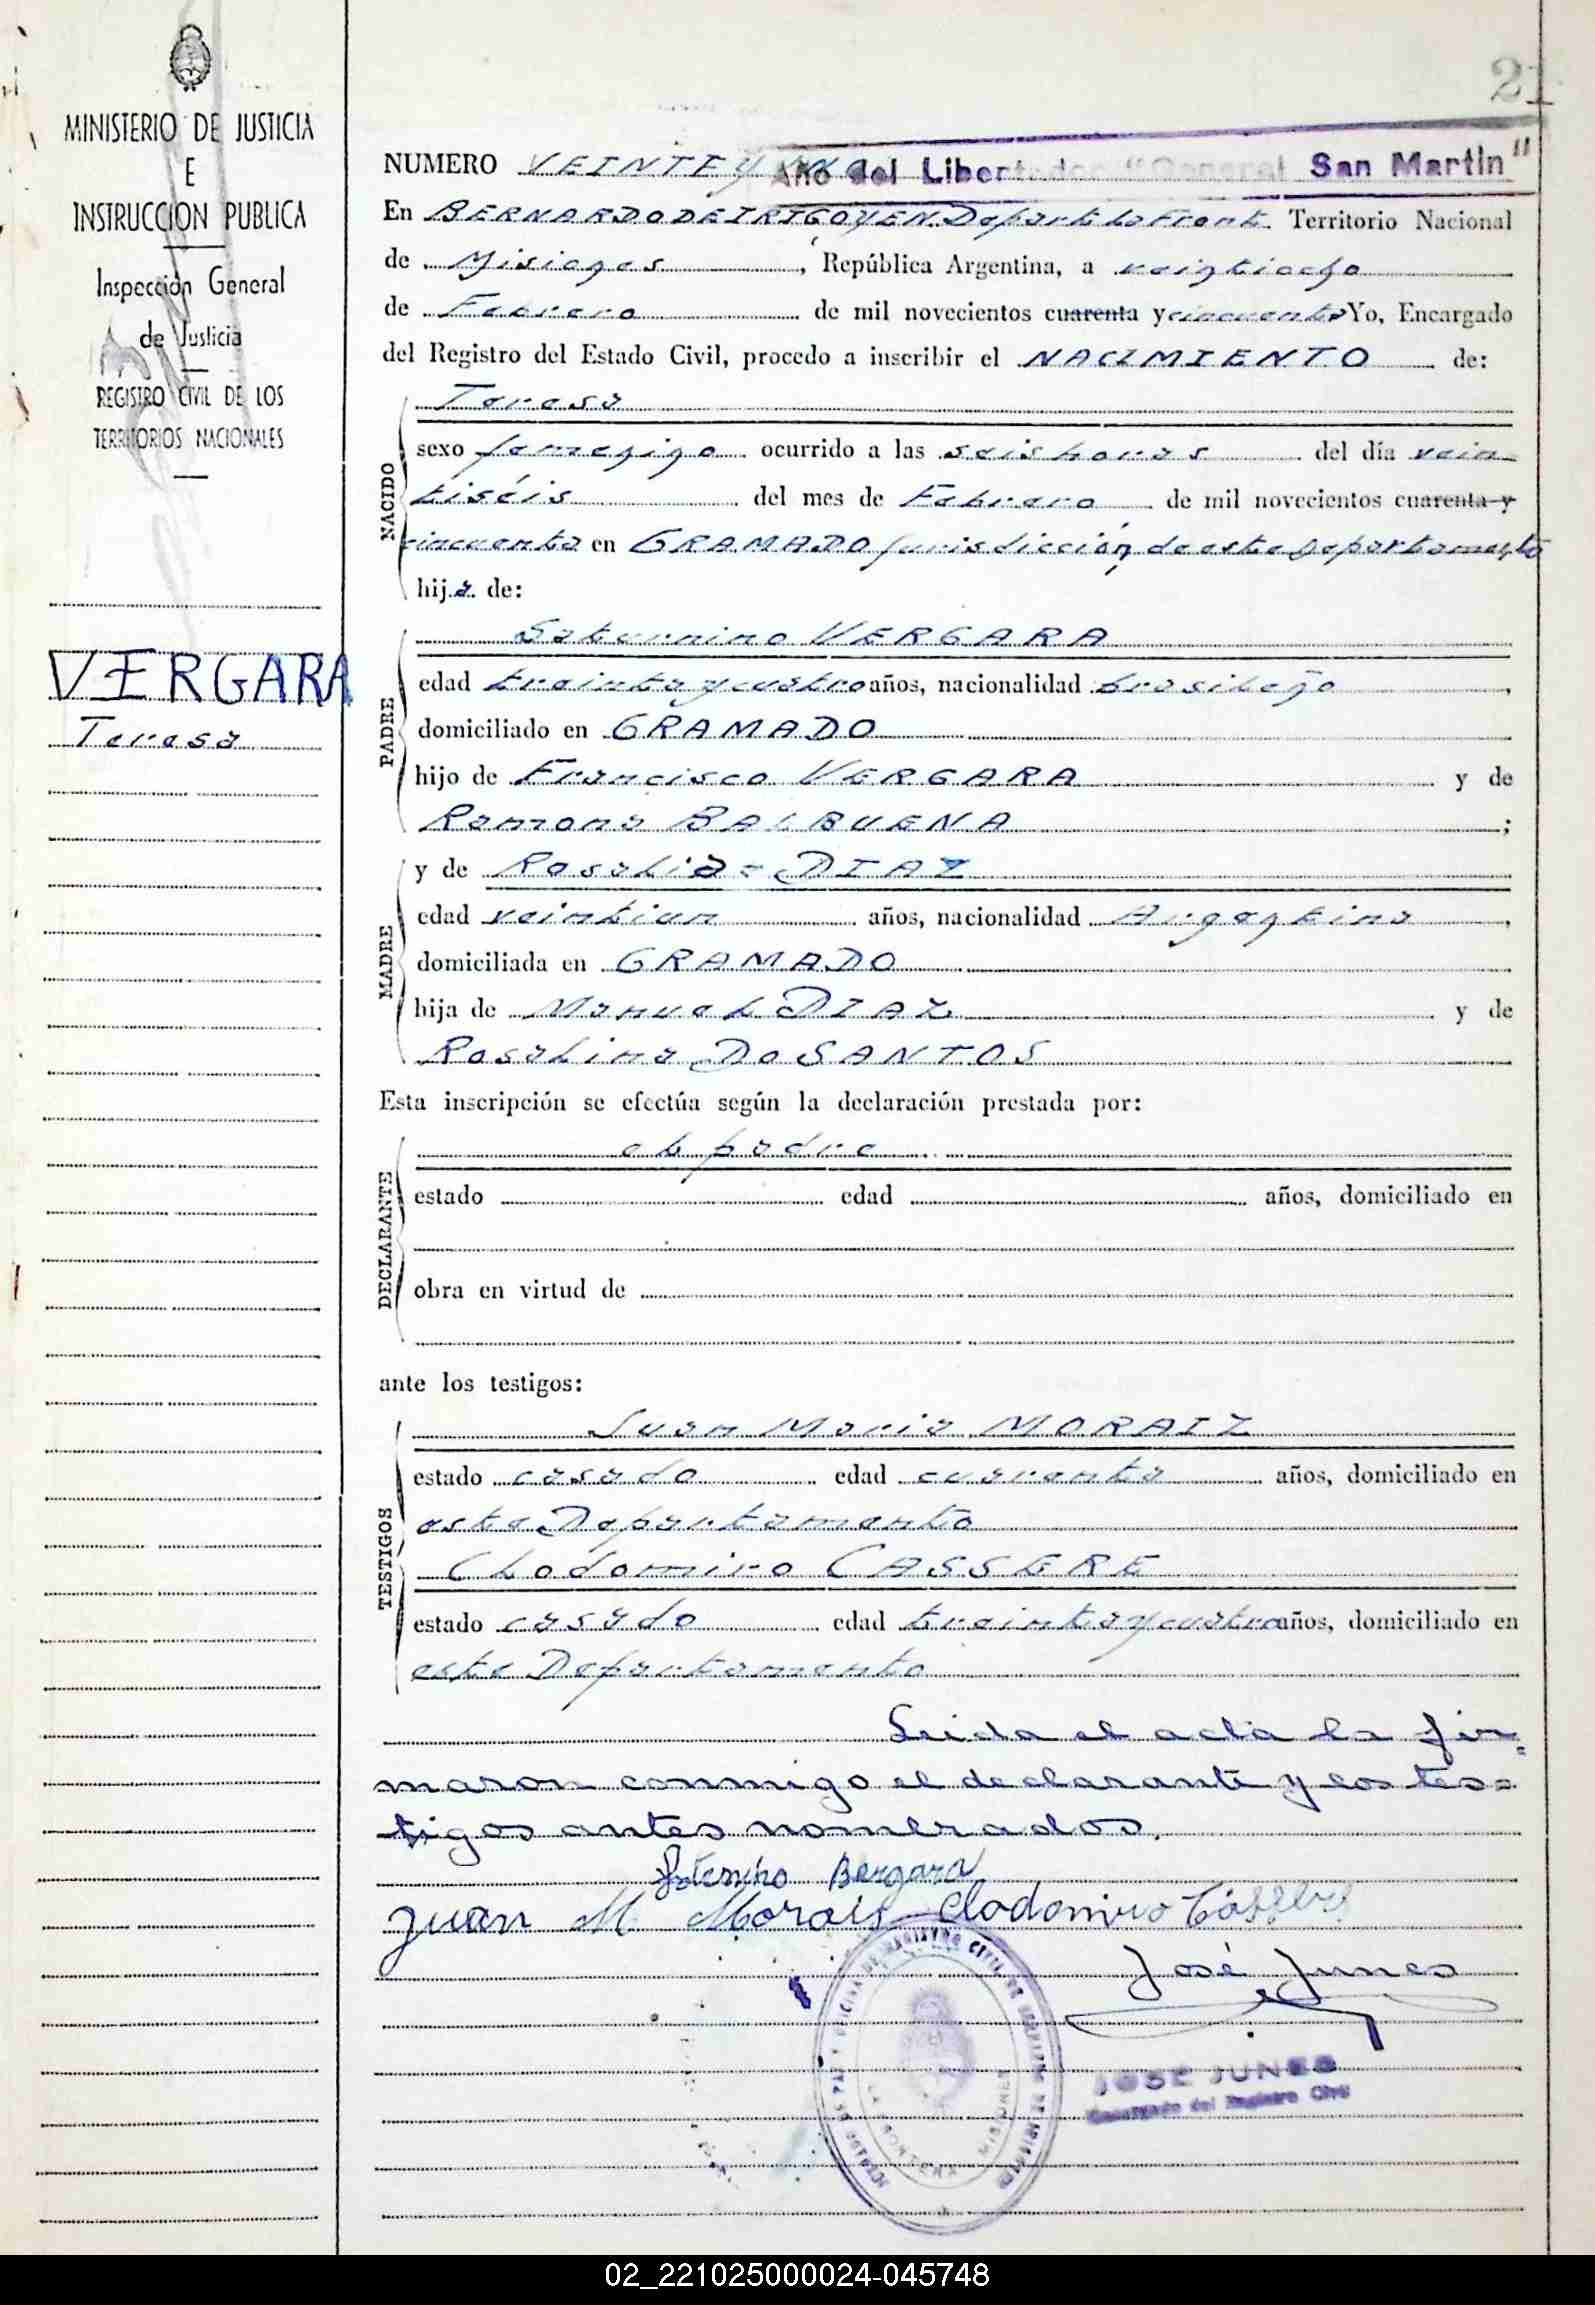 21
MINISTERIO DE JUSTICIA
E
INSTRUCCION PUBLICA
Inspección General
de Justicia
REGISTRO CIVIL DE LOS
TERRITORIOS NACIONALES
VERGARA
Teresa
NUMERO VEINTE y UNO
Año del Libertador "General San Martin"
En BERNARDO DE IRIGOYEN Depart to Front. Territorio Nacional
de Misiones, República Argentina, a veintiocho
de Febrero de mil novecientos cuarenta y cincuenta Yo, Encargado
del Registro del Estado Civil, procedo a inscribir el NACIMIENTO de:
NACIDO
Teresa
sexo femenino ocurrido a las seis horas del día vein-
tiséis del mes de Febrero de mil novecientos cuarenta y
cincuenta en GRAMADO jurisdicción de este Departamento
hija de:
PADRE
Saturnino VERGARA
edad treinta y cuatro años, nacionalidad brasileño,
domiciliado en GRAMADO
hijo de Francisco VERGARA y de
Ramona BALBUENA;
MADRE
y de Rosalia = DIAZ
edad veintiun años, nacionalidad Argentina,
domiciliada en GRAMADO
hija de Manuel DIAZ y de
Rosalina Do SANTOS
Esta inscripción se efectúa según la declaración prestada por:
DECLARANTE
el padre
estado edad años, domiciliado en
obra en virtud de
ante los testigos:
TESTIGOS
Juan Maria MORAIZ
estado casado edad cuarenta años, domiciliado en
este Departamento
Clodomiro CASSERE
estado casado edad treinta y cuatro años, domiciliado en
este Departamento
Leida el acta la fir=
maron conmigo el declarante y los tes=
tigos antes nombrados.
Bergara
Juan M. Morais Clodomiro
José Junes
JOSE JUNES
Encargado del Registro Civil
02_221025000024-045748